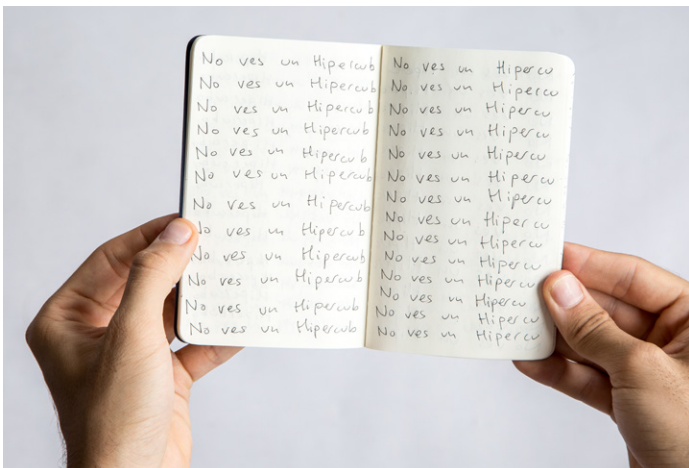 No ves un Hipercub
No ves un Hipercub
No ves un Hipercub
No ves un Hipercub
No ves un Hipercub
No ves un Hipercub
No ves un Hipercub
No ves un Hipercub
No ves un Hipercub
No ves un Hipercub
No ves un Hipercub
No ves un Hipercub
No ves un Hipercu
No ves un Hipercu
No ves un Hipercu
No ves un Hipercu
No ves un Hipercu
No ves un Hipercu
No ves un Hipercu
No ves un Hipercu
No ves un Hipercu
No ves un Hipercu
No ves un Hipercu
No ves un Hipercu
No ves un Hipercu